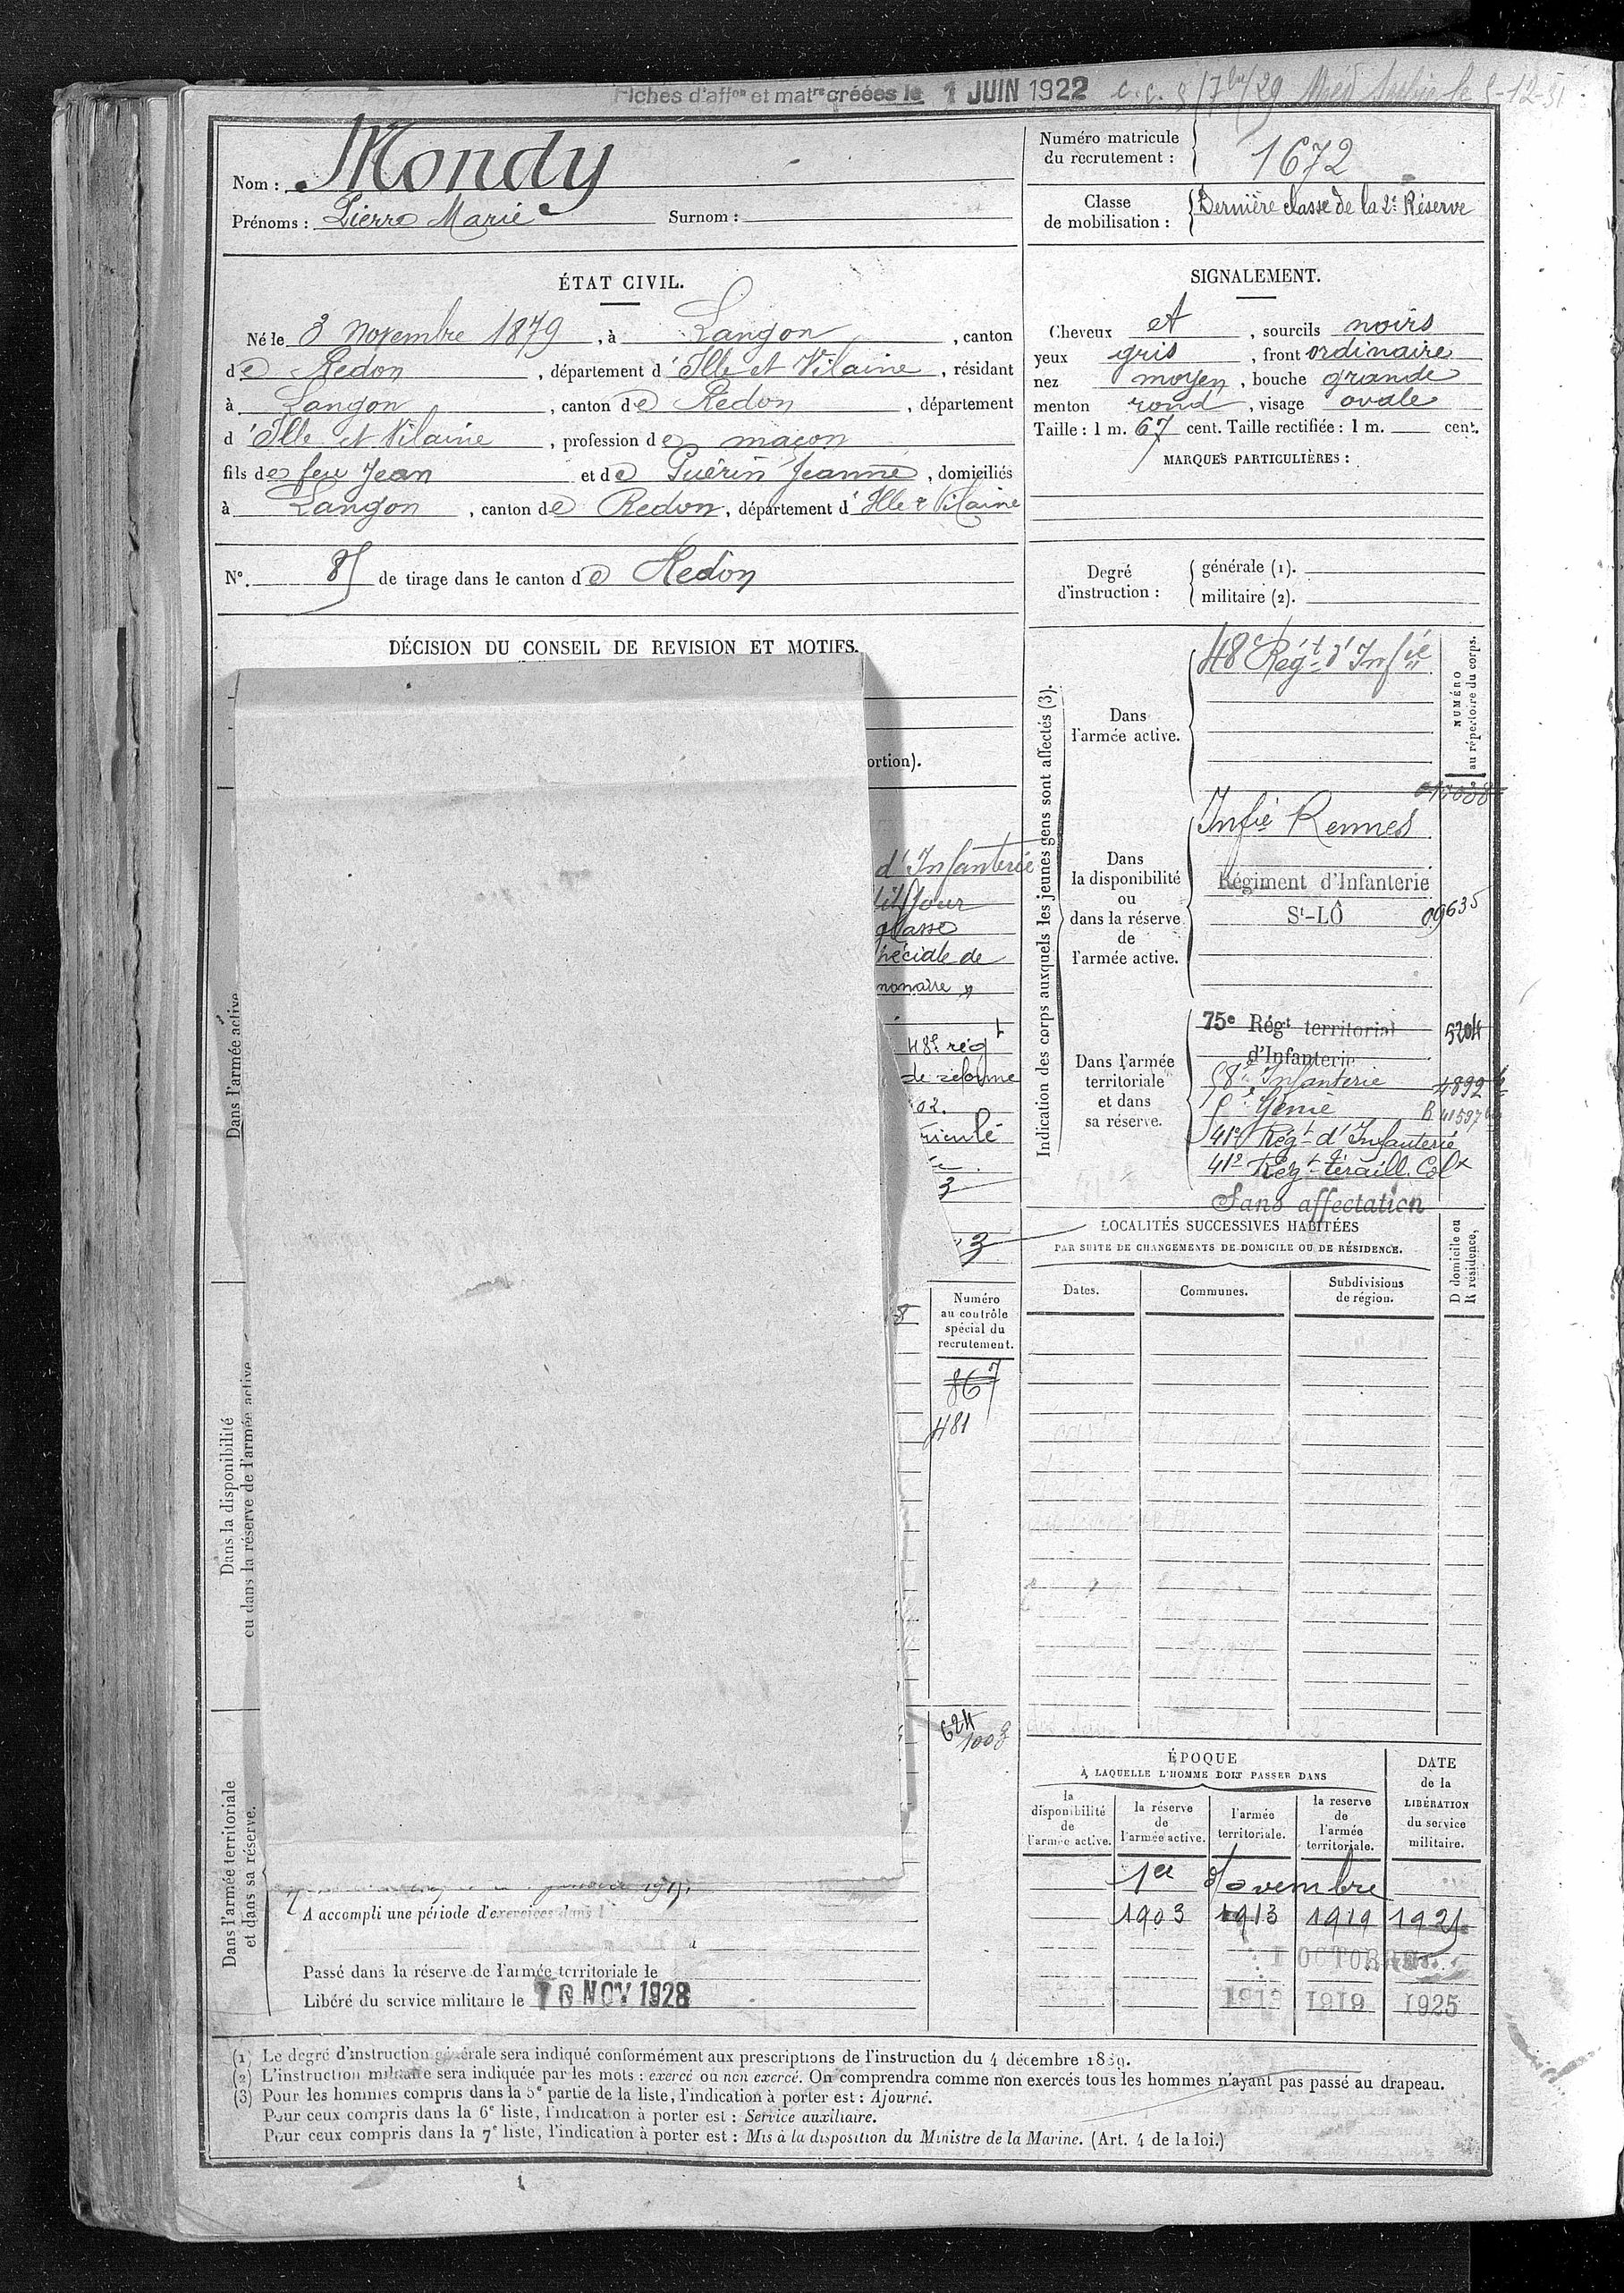 Fiches d'affon et matre créées le 1 JUIN 1922 c.c. 8/7bre/29 Méd. Serbie le 5-12-31
Nom : Mondy
Prénoms : Pierre Marie Surnom :
Numéro matricule du recrutement : 1672
Classe de mobilisation : Dernière classe de la 2e Réserve
ÉTAT CIVIL.
Né le 3 novembre 1879, à Langon, canton
de Redon, département d'Ille et Vilaine, résidant
à Langon, canton de Redon, département
d'Ille et Vilaine, profession de maçon
fils de feu Jean et de Guérin Jeanne, domiciliés
à Langon, canton de Redon, département d'Ille & Vilaine
N° 85 de tirage dans le canton de Redon
SIGNALEMENT.
Cheveux et, sourcils noirs
yeux gris, front ordinaire
nez moyen, bouche grande
menton rond, visage ovale
Taille : 1 m. 67 cent. Taille rectifiée : 1 m. cent.
MARQUES PARTICULIÈRES :
Degré d'instruction :
générale (1).
militaire (2).
DÉCISION DU CONSEIL DE REVISION ET MOTIFS.
ortion).
d'Infanterie
dit jour
classe
péciale de
nonaire »
48e régt
de réforme
02.
riculé
3
3
8
Dans l'armée active
Dans la disponibilité
ou dans la réserve de l'armée active
Dans l'armée territoriale
et dans sa réserve.
Numéro
au contrôle
spécial du
recrutement.
867
481
624
1003
Indication des corps auxquels les jeunes gens sont affectés (3).
NUMÉRO
au répertoire du corps.
Dans
l'armée active.
48e Régt d'Infie
Dans
la disponibilité
ou
dans la réserve
de
l'armée active.
Infie Rennes
Régiment d'Infanterie
St-LÔ 09635
Dans l'armée
territoriale
et dans
sa réserve.
75e Régt territorial 5204
d'Infanterie
58e Infanterie 4892
Génie
41e Régt d'Infanterie
41e Régt tiraill. Colx
Sans affectation
LOCALITÉS SUCCESSIVES HABITÉES
PAR SUITE DE CHANGEMENTS DE DOMICILE OU DE RÉSIDENCE.
Dates. Communes. Subdivisions de région. D domicile ou R résidence.
ÉPOQUE
À LAQUELLE L'HOMME DOIT PASSER DANS
la disponibilité de l'armée active. la réserve de l'armée active. l'armée territoriale. la reserve de l'armée territoriale.
DATE de la LIBÉRATION du service militaire.
1er Novembre
1903 1913 1919 1925
1 OCTOBRE
1913 1919 1925
A accompli une période d'exercices dans l
Passé dans la réserve de l'armée territoriale le
Libéré du service militaire le 10 NOV 1928
(1) Le degré d'instruction générale sera indiqué conformément aux prescriptions de l'instruction du 4 décembre 1889.
(2) L'instruction militaire sera indiquée par les mots : exercé ou non exercé. On comprendra comme non exercés tous les hommes n'ayant pas passé au drapeau.
(3) Pour les hommes compris dans la 5e partie de la liste, l'indication à porter est : Ajourné.
Pour ceux compris dans la 6e liste, l'indication à porter est : Service auxiliaire.
Pour ceux compris dans la 7e liste, l'indication à porter est : Mis à la disposition du Ministre de la Marine. (Art. 4 de la loi.)